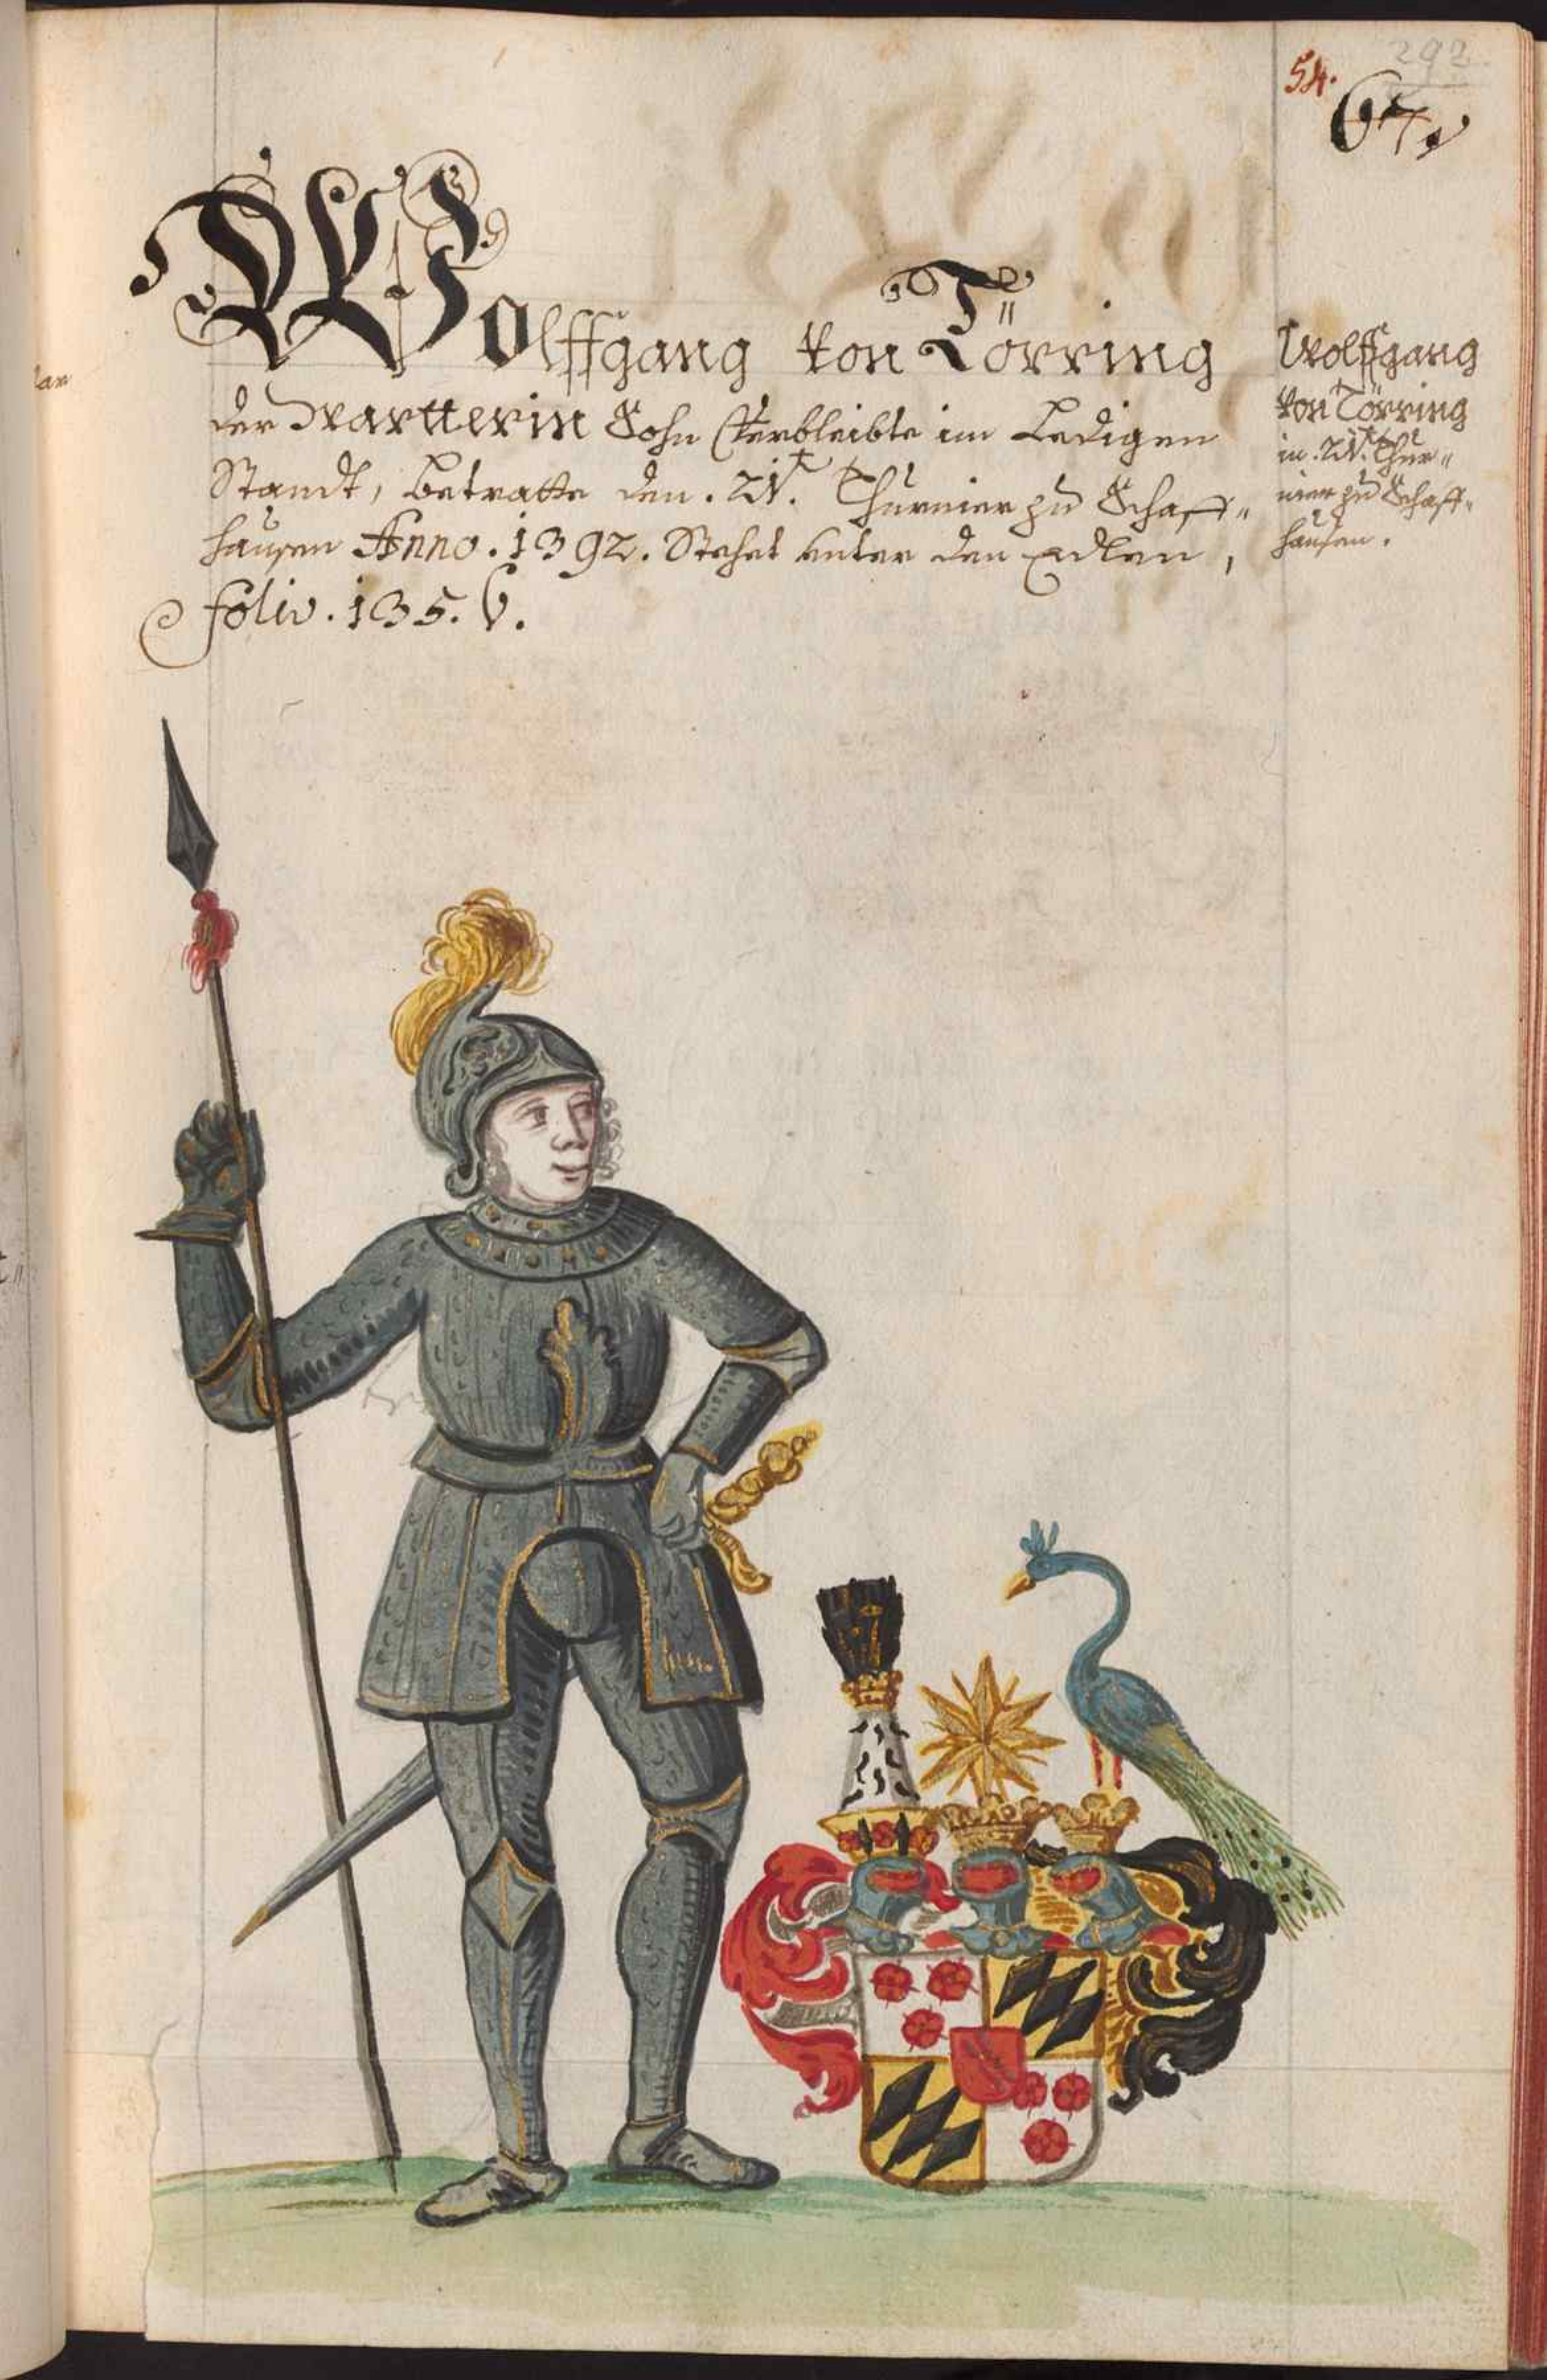 292.
54.
67,
Wolffgang von Törring
der Wartterin Sohn Verbleibte im Ledigen
Standt, Betratte den . 21t. Thurnier zu Schaff„
hausen Anno . 1392 . Stehet unter den Edlen ,
folio . 135 . 6 .
Wolffgang
von Törring
in . 21t. Thur„
nier zu Schaff„
hausen .